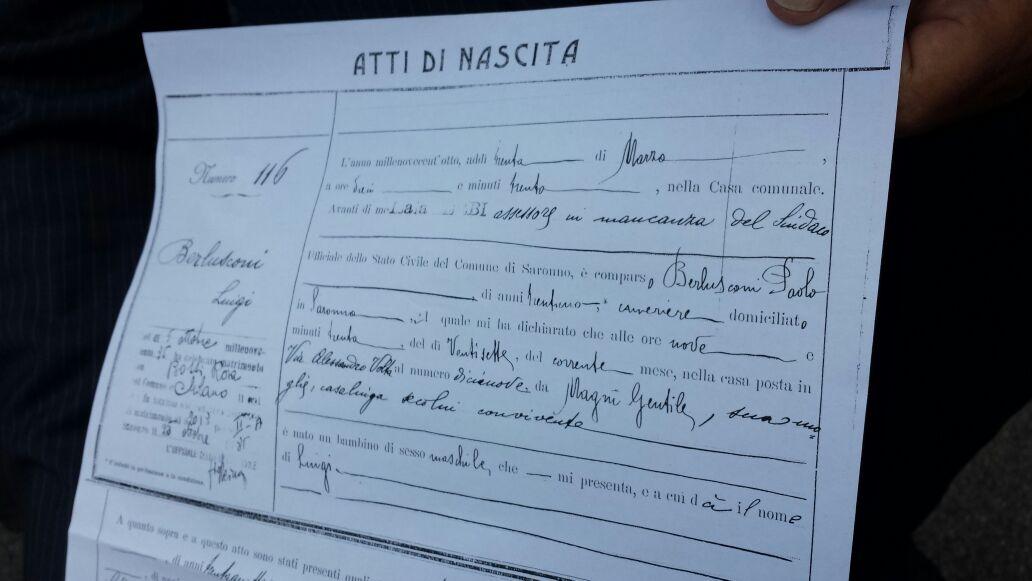 ATTI DI NASCITA
Numero 116
Berlusconi
Luigi
ottobre millenove-
matrimonio
Bossi Rosa
Milano
* S'indichi la professione o la condizione.
L'anno millenovecent'otto, addì trenta di Marzo,
a ore dieci e minuti trenta, nella Casa comunale.
Avanti di me assessore in mancanza del Sindaco
Ufficiale dello Stato Civile del Comune di Saronno, è comparso Berlusconi Paolo
, di anni trentuno, * cameriere domiciliato
in Saronno, il quale mi ha dichiarato che alle ore nove e
minuti trenta, del dì Ventisette, del corrente mese, nella casa posta in
Via Alessandro Volta al numero diciannove da Magni Gentile, sua mo-
glie, casalinga seco lui convivente
è nato un bambino di sesso maschile, che mi presenta, e a cui dà il nome
di Luigi
A quanto sopra e a questo atto sono stati presenti quali
, di anni